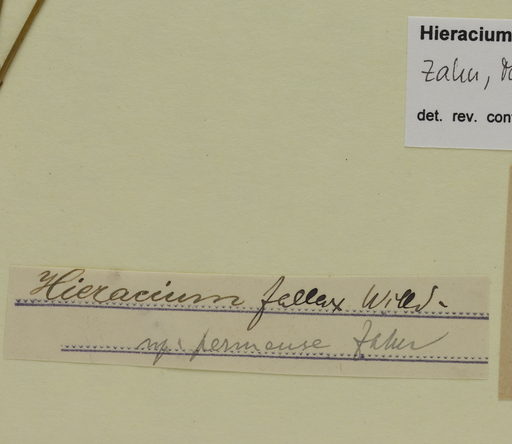 Hieracium
Zahn,
det. rev. con
Hieracium fallax Willd.
permense Zahn